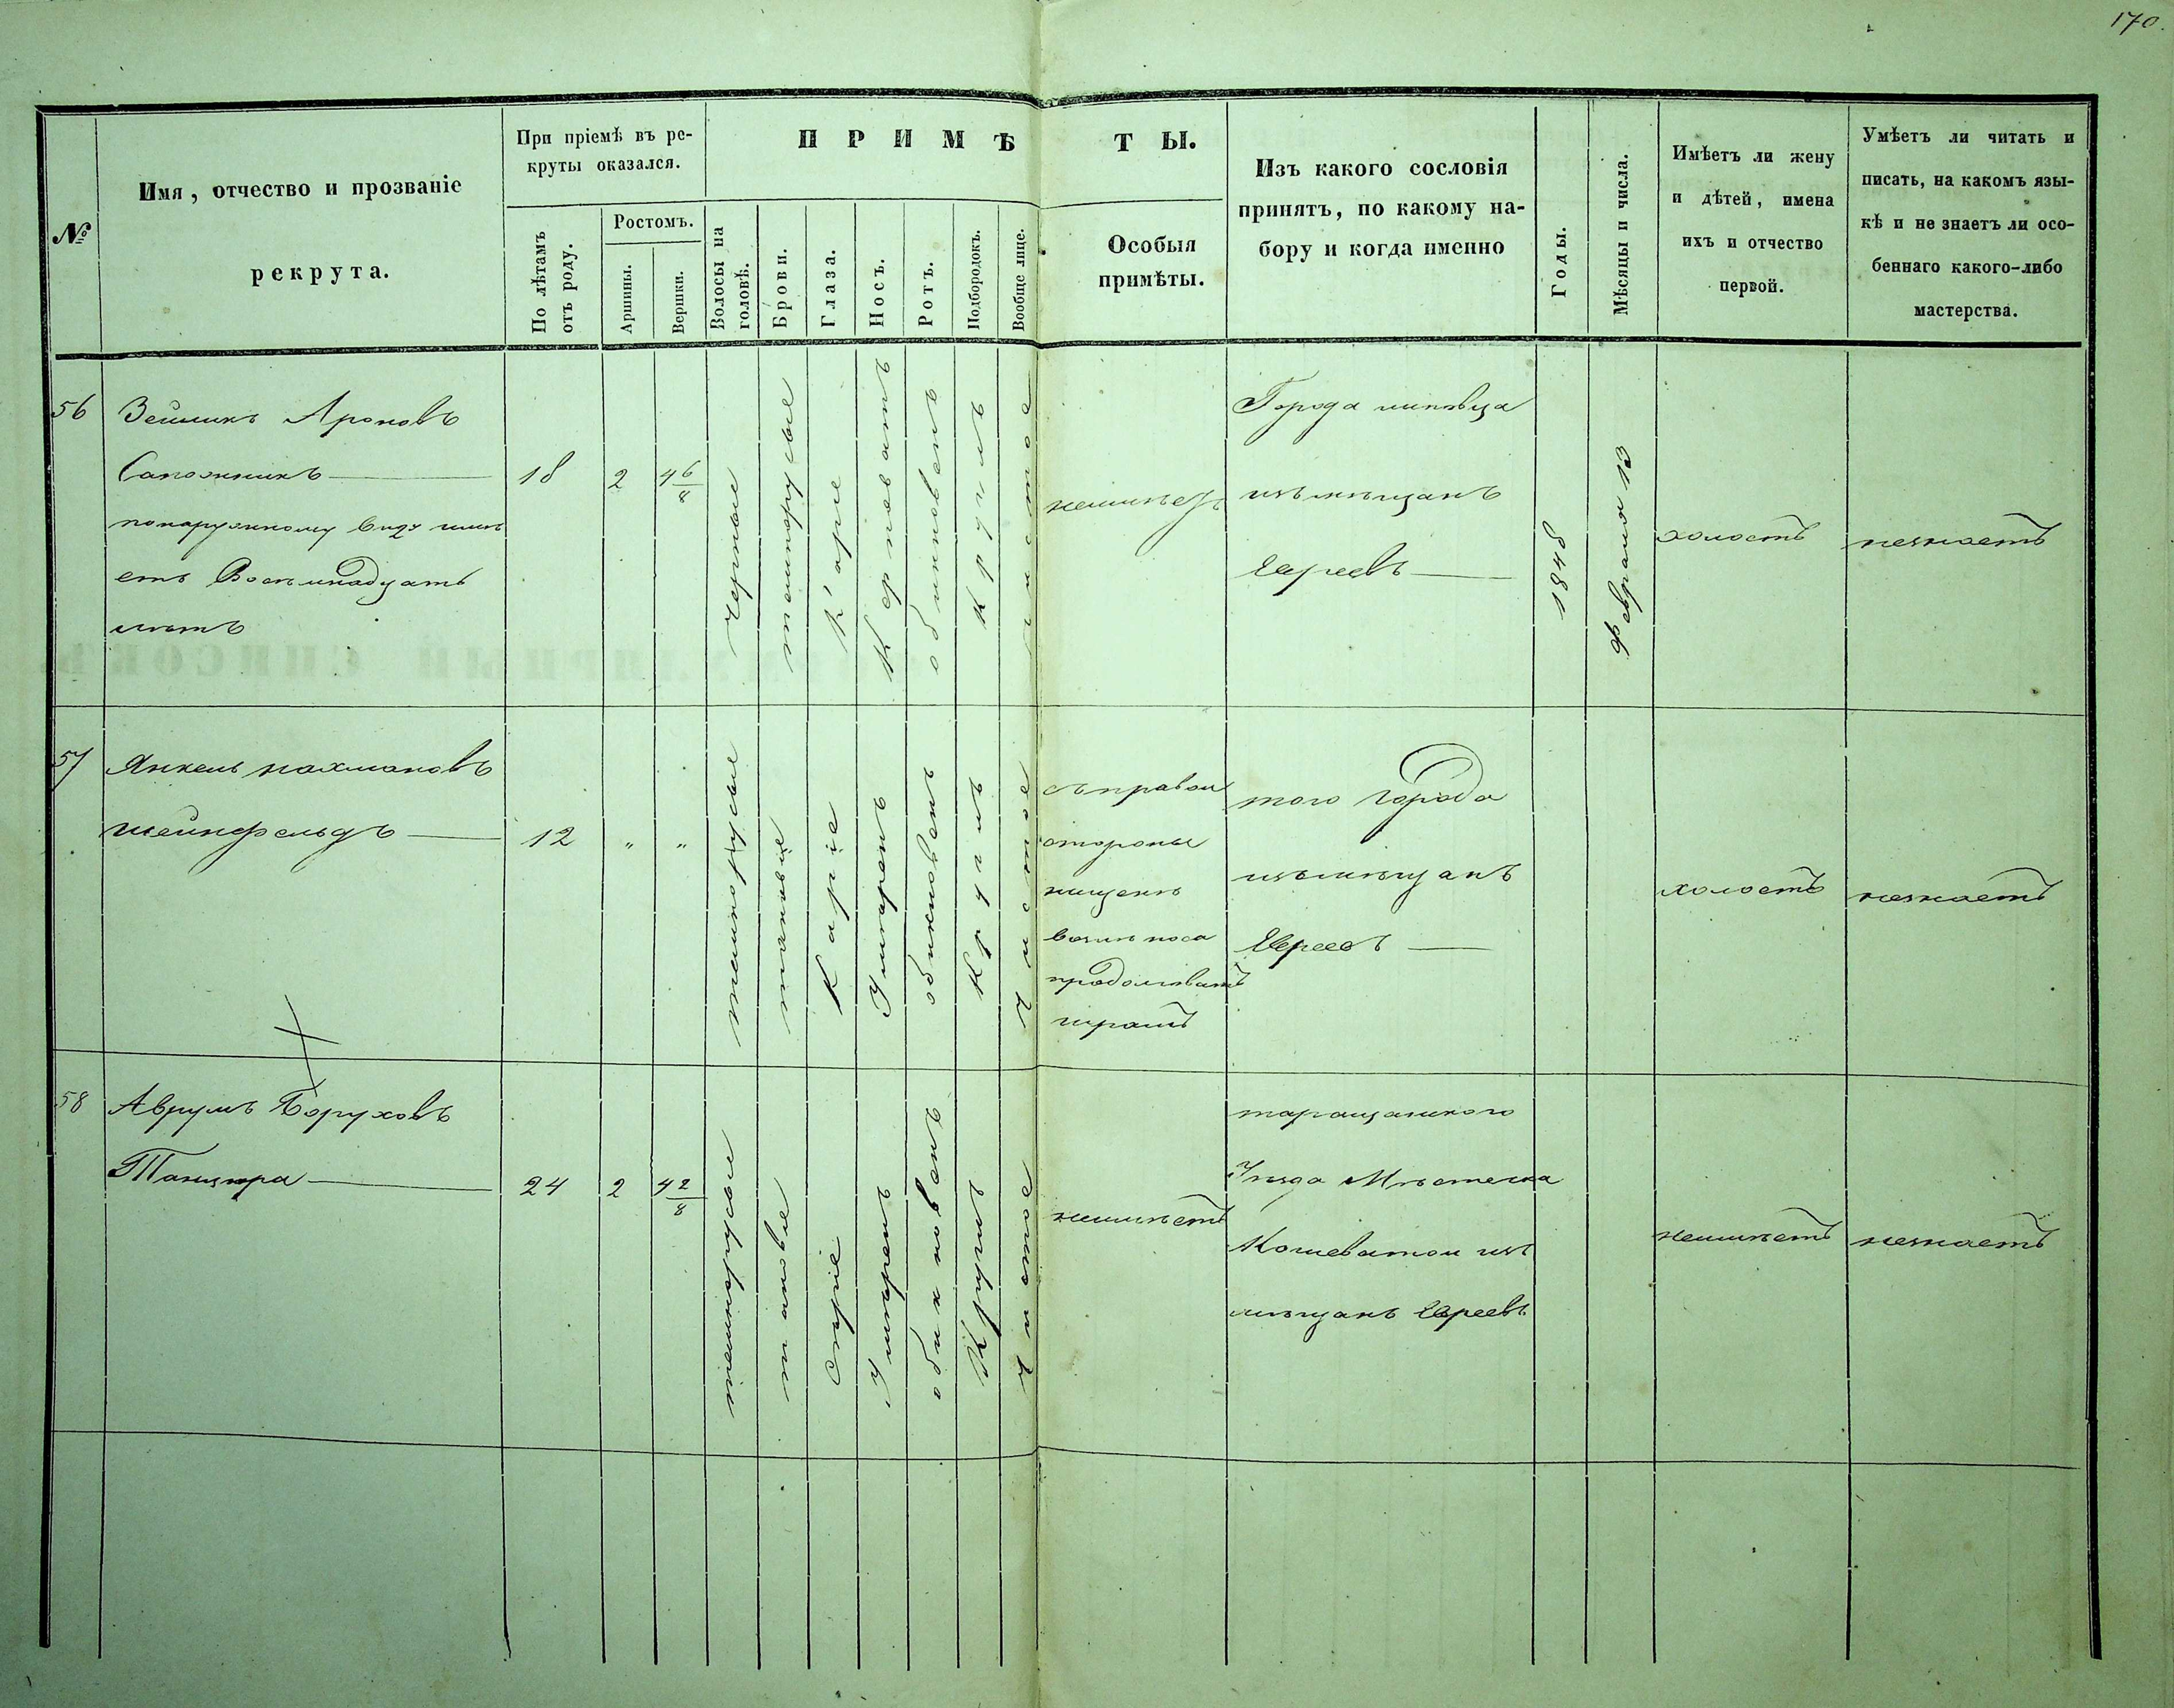 170.
№
Имя, отчество и прозваніе
рекрута.
При пріемѣ въ ре-
круты оказался.
По лѣтамъ
отъ роду.
Ростомъ.
Аршины.
Вершки.
ПРИМѢТЫ.
Волосы на
головѣ.
Брови.
Глаза.
Носъ.
Ротъ.
Подбородокъ.
Вообще лице.
Особыя
примѣты.
Изъ какого сословія
принятъ, по какому на-
бору и когда именно
Годы.
Мѣсяцы и числа.
Имѣетъ ли жену
и дѣтей, имена
ихъ и отчество
первой.
Умѣетъ ли читать и
писать, на какомъ язы-
кѣ и не знаетъ ли осо-
беннаго какого-либо
мастерства.
56
Зейликъ Ароновъ
Сапожникъ
понаружному виду имѣ
етъ Восемнадцать
лѣтъ
18
2
4 6/8
черные
темнорусые
Карие
Курноватъ
обикновенъ
Круглъ
чистое
неимѣетъ
Города липовца
изъ мѣщанъ
Евреевъ
1848
Февраля 13
холостъ
незнаетъ
57
Янкель нахмановъ
шейнфельдъ
12
"
"
темнорусые
таковыіе
Каріе
Умѣренъ
обикновенъ
Круглъ
Чистое
съ правои
стороны
на щекѣ
возлѣ носа
продолговатъ
шрамъ
того Города
изъ мѣщанъ
Евреевъ
холостъ
незнаетъ
58
Аврумъ Боруховъ
Танцюра
24
2
4 2/8
темнорусые
таковые
Серіе
Умѣренъ
обикновенъ
Круглъ
Чистое
неимѣетъ
таращанского
Уезда Мѣстечка
Кошеватои изъ
мѣщанъ Евреевъ
неимѣетъ
незнаетъ